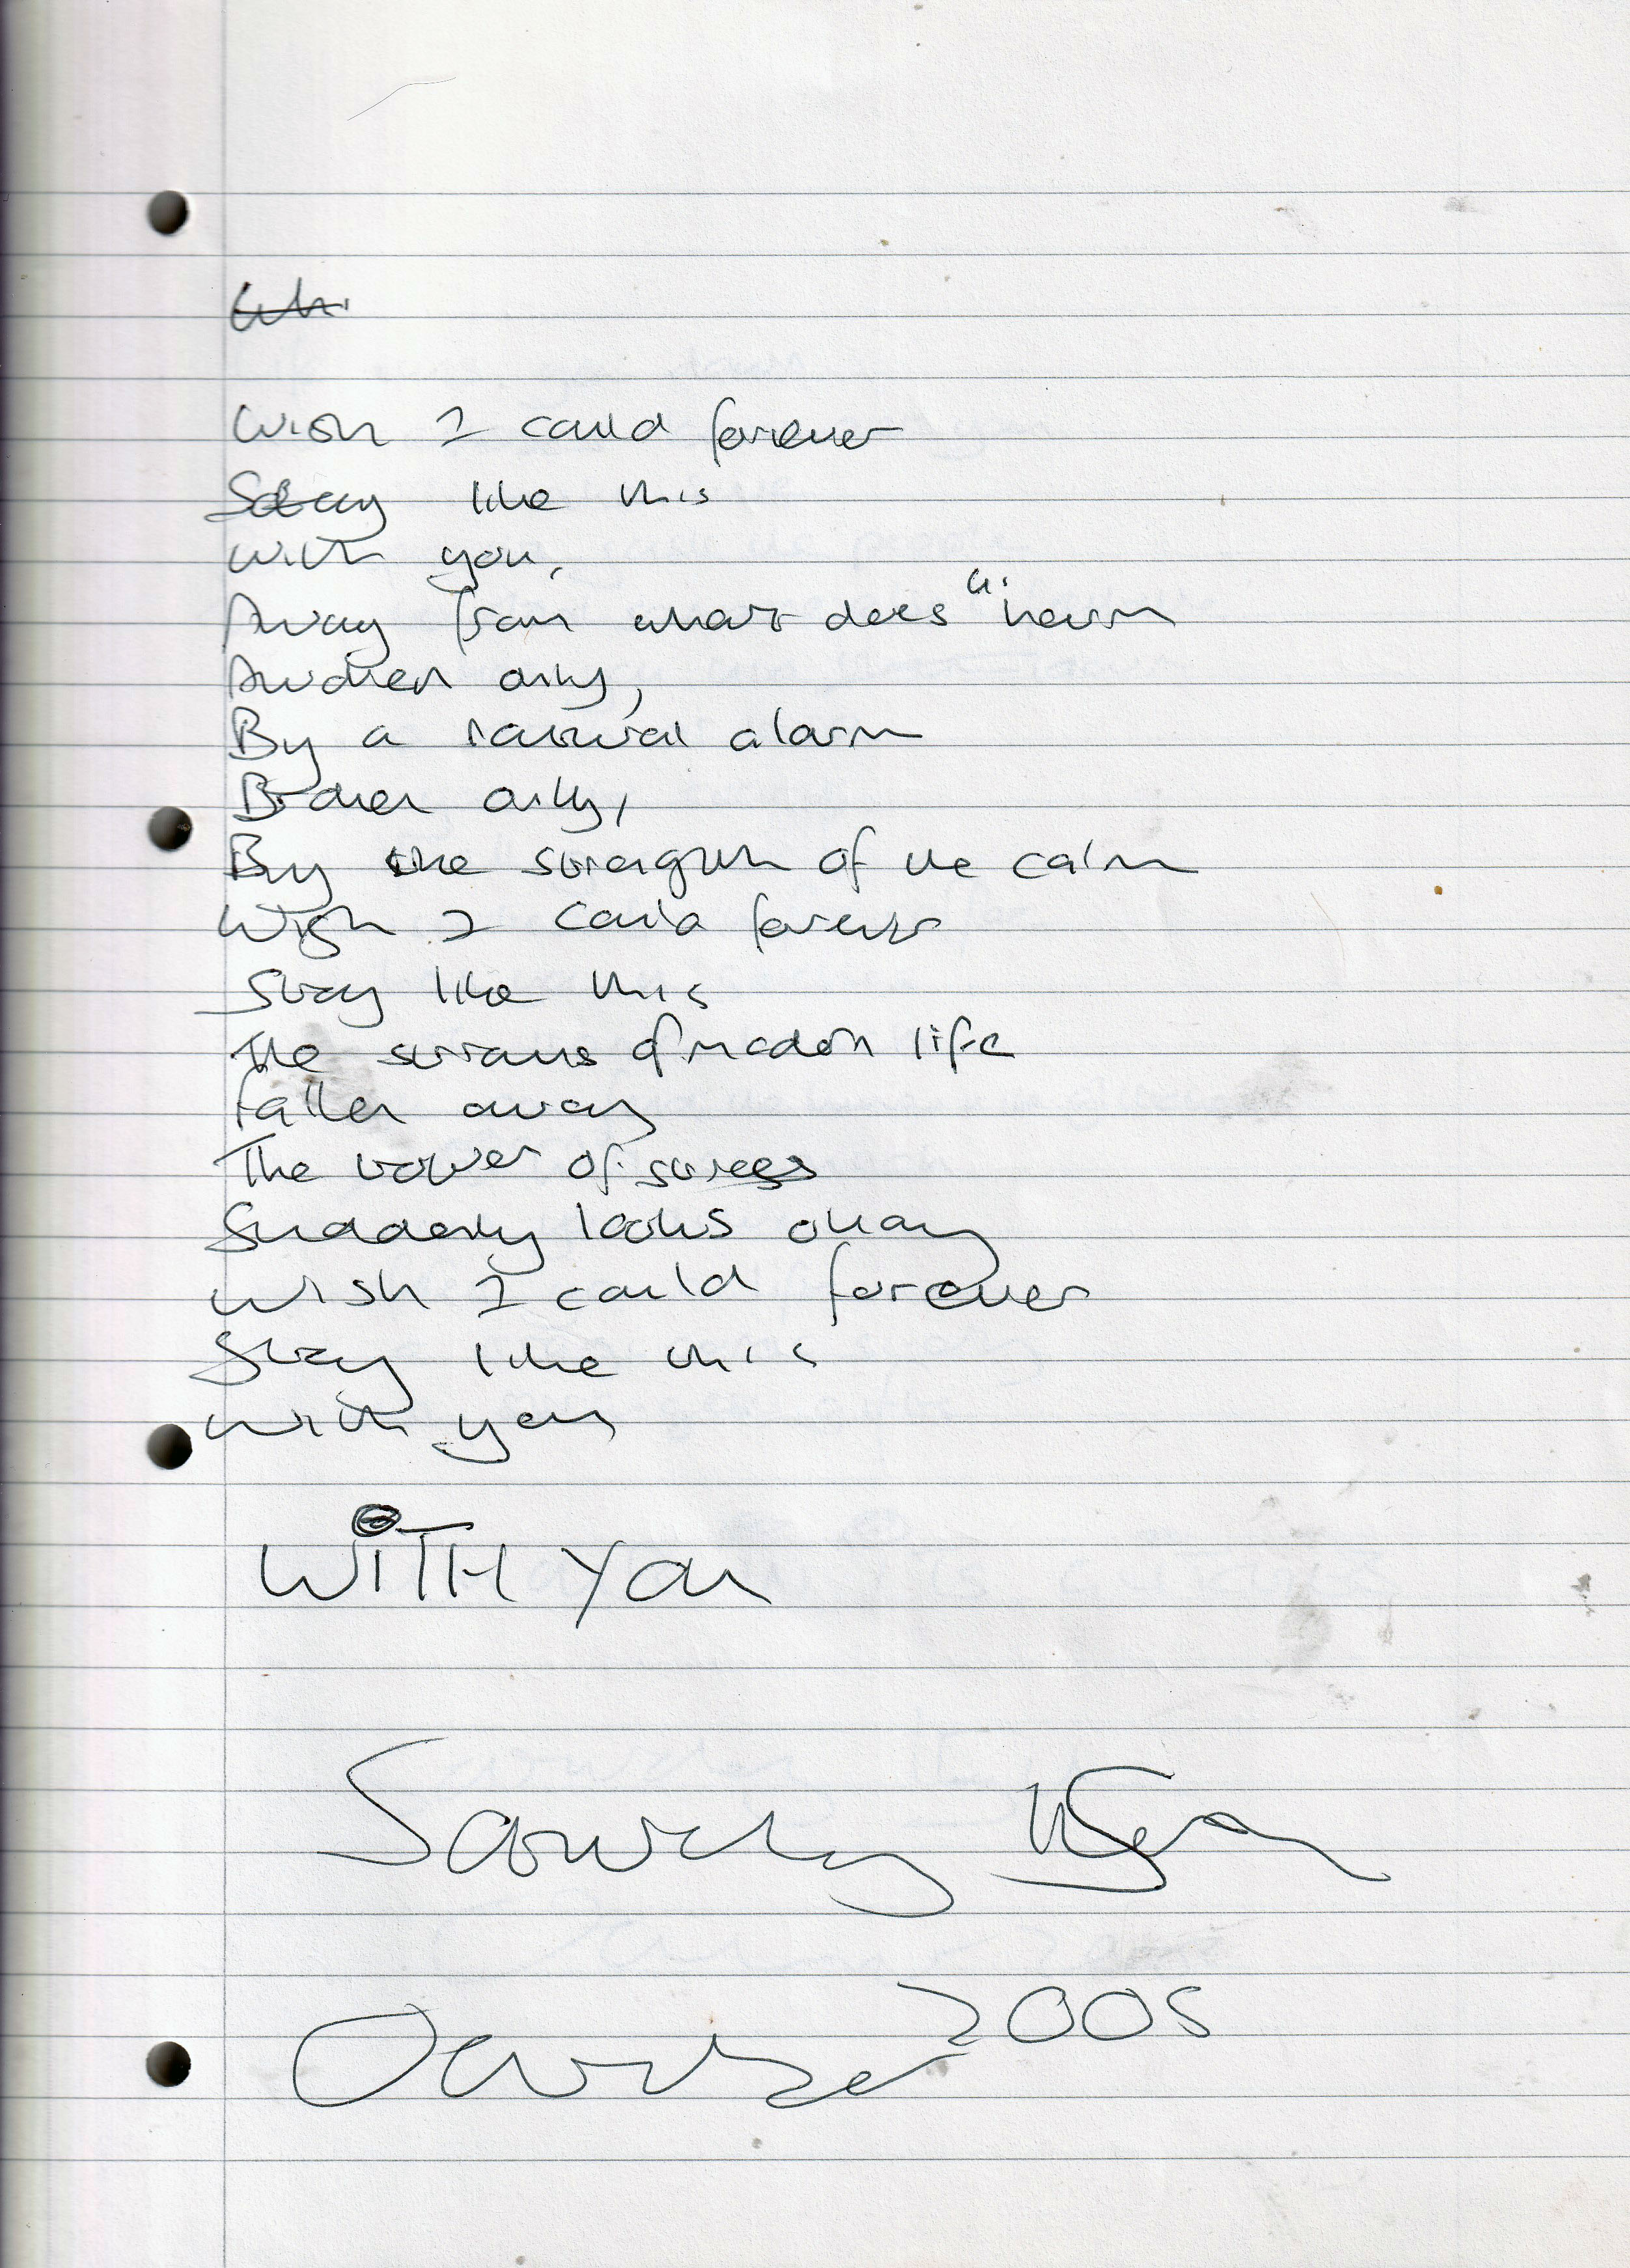 Wish I could forever
Stay like this
with you,
Away from what does harm
Awoken only,
By a natural alarm
Broken only,
By the strength of the calm
Wish I could forever
Stay like this
The serious of modern life
fallen away
The power of stress
Suddenly looks okay
wish I could forever
Stay like this
with you
WITH YOU
October 2005